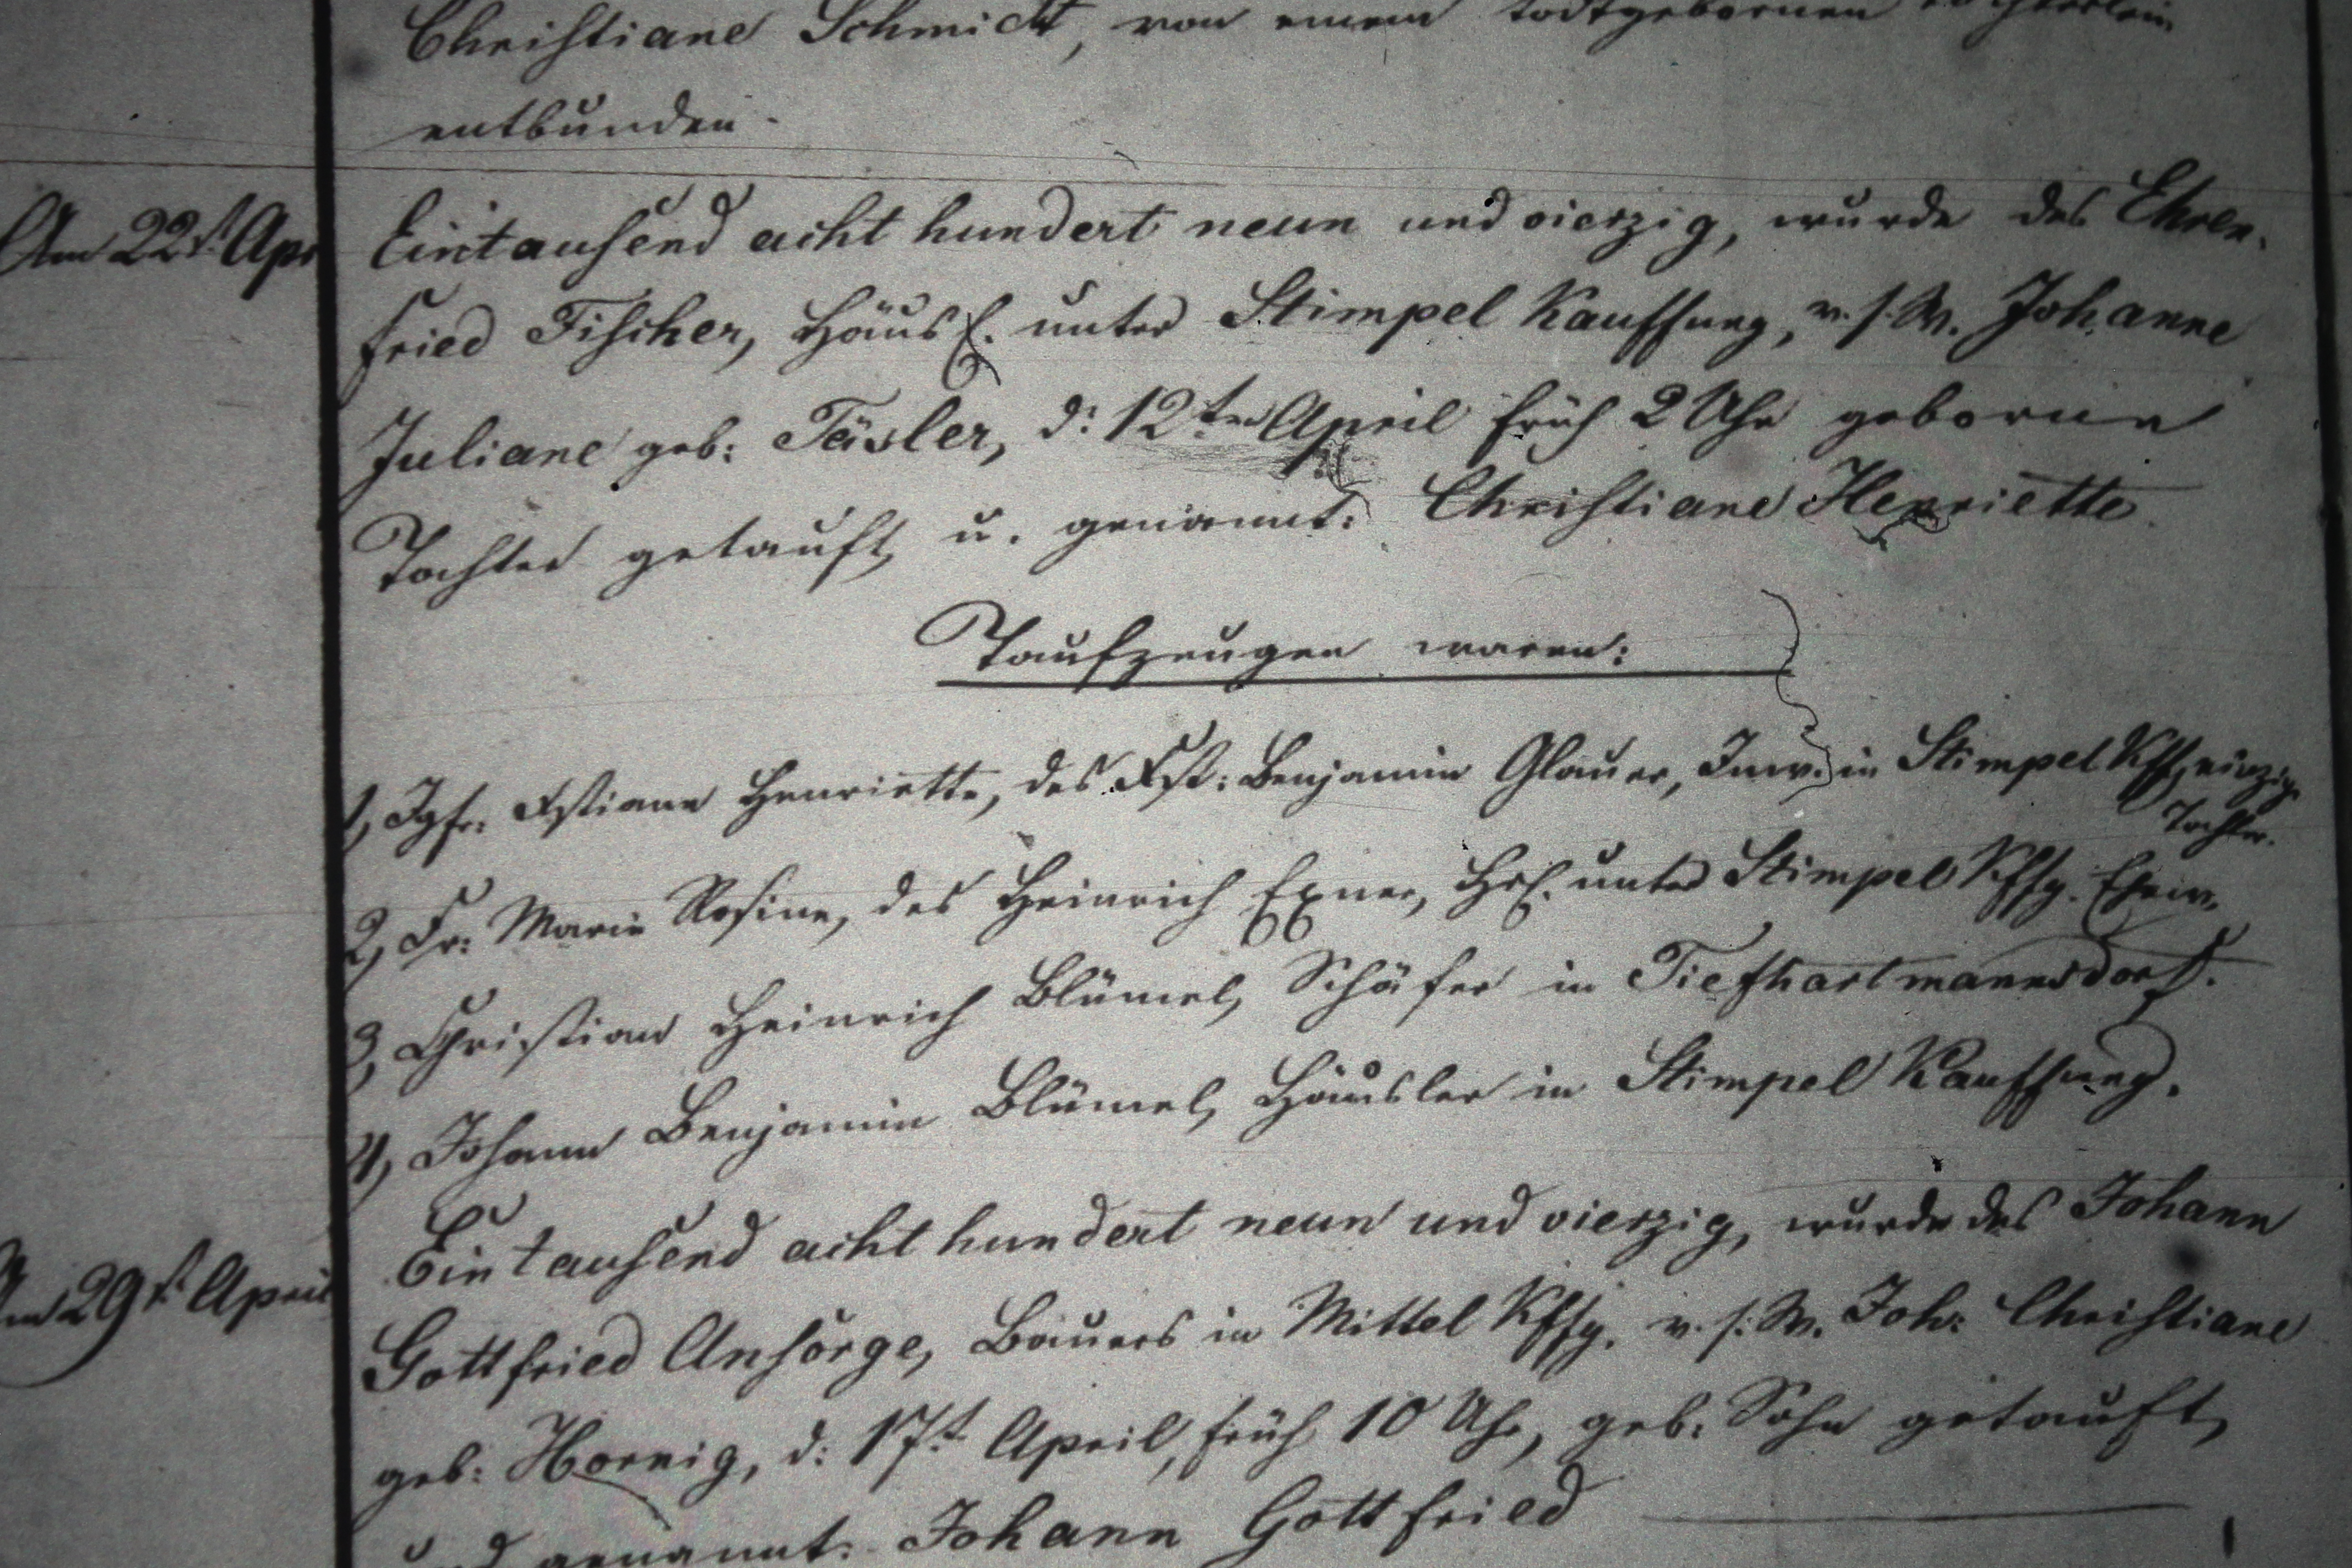 Christiane Schmidt, von einem todtgebornen Töchterlein
entbunden.
Am 22t. Apr
Eintausend acht hundert neun und vierzig, wurde des Ehren-
fried Fischer, Häusl. unter Stimpel Kauffung, v. s. W. Johanne
Juliane geb: Täsler, d: 12ten April früh 2 Uhr geborne
Tochter getauft u. genannt: Christiane Henriette.
Taufzeugen waren:
1, Jgfr. Xstiane Henriette, des Xst: Benjamin Glauer, Inw. in Stimpel Kffg einzige
Tochter.
2, Fr: Marie Rosine, des Heinrich Exner, Hsl. unter Stimpel Kffg. Ehew.
3, Christian Heinrich Blümel, Schäfer in Tiefhartmannsdorf.
4, Johann Benjamin Blümel, Häusler in Stimpel Kauffung.
Am 29t. April
Eintausend acht hundert neun und vierzig, wurde des Johann
Gottfried Ansorge, Bauers in Mittel Kffg. v. s. W. Joh: Christiane
geb: Hornig, d: 17t. April, früh 10 Uhr, geb: Sohn getauft,
und genannt: Johann Gottfried